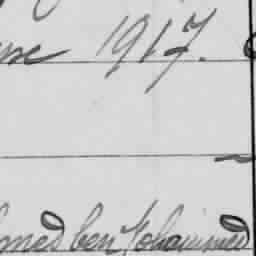 1917.
med ben Mohammed